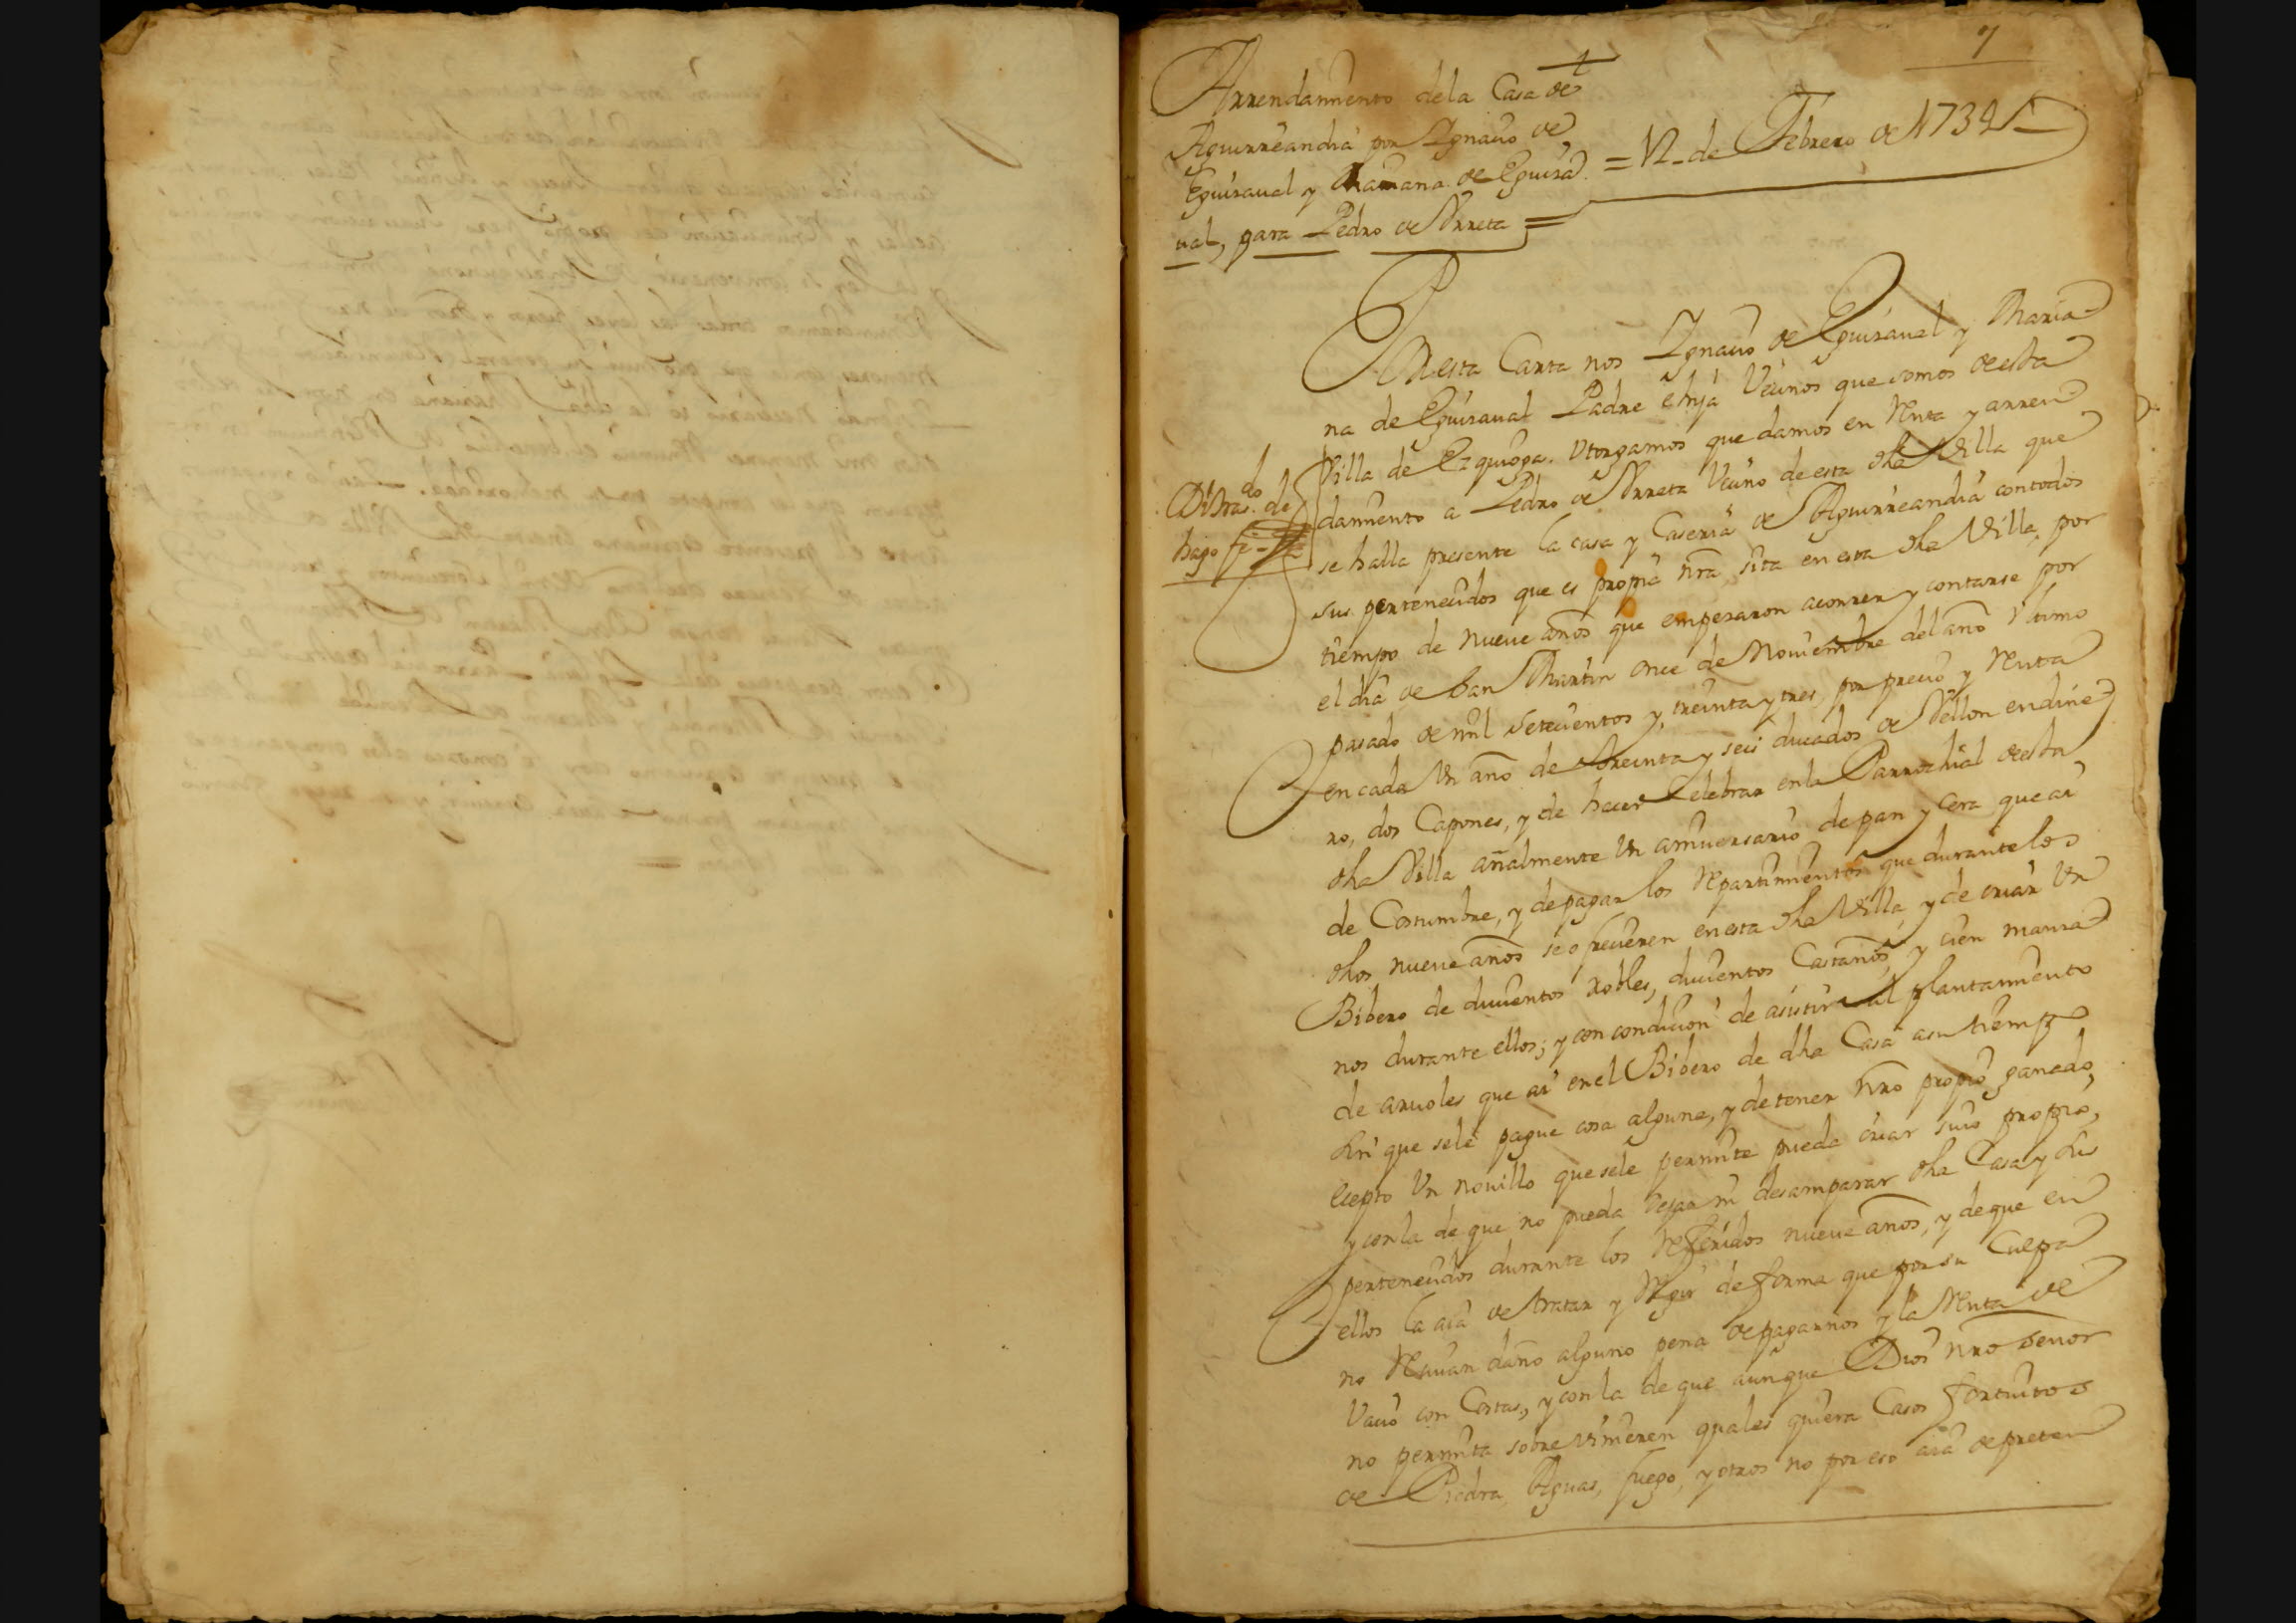 7
Arrendamiento dela Casa de
Aguirreandia por Ygnacio de
Eguizaual y Mariana de Eguiza
ual, para Pedro de Urreta =
= 12 de Febrero de 1734
En esta Carta nos Ygnacio de Eguizaual y Maria
na de Eguizaual Padre e hija Vecinos que somos de esta
Villa de Ezquioga. Otorgamos que damos en Renta y arren
damiento a Pedro de Urreta Vecino de esta dha Villa que
se halla presente la casa y Caseria de Aguirreandia contodos
sus pertenecidos que es propia nra, sita en esta dha Villa, por
tiempo de nueve años que empezaron acorrer y contarse por
el dia de San Martin Once de Nouiembre del año Ultimo
pasado de mil Setecientos y, treinta y tres, por precio y Renta
en cada Un año de treinta y seis ducados de Vellon en dine
ro, dos Capones, y de hacer Celebrar enla Parrochial de esta
dha Villa añalmente Un anniuersario de pan y Cera que ai
de Costumbre, y de pagar los Repartimientos que durante los
dhos nueve años se ofrecieren en esta dha Villa, y de criar Un
Bibero de ducientos Robles, ducientos Castaños, y cien manza
nos durante ellos; y con condicion de asistir al plantamiento
de aruoles que ai en el Bibero de dha Casa asu tiempo
sin que sele pague cosa alguna, y de tener nro propio ganado,
Ecepto Un nouillo que sele permite pueda criar suio propio,
y conla de que no pueda dejar ni desamparar dha Casa y sus
pertenecidos durante los Referidos nueve años, y de que en
ellos la aia de tratar y Regir de forma que por su Culpa
no Reciuan daño alguno pena de pagarnos y la Renta de
Vacio con Costas, y conla de que aunque Dios nro Señor
no permita sobrevinieren quales quiera Casos fortuitos
de Piedra, Aguas, fuego, y otros no por eso aia de preten
Di tras.do de
hago fe